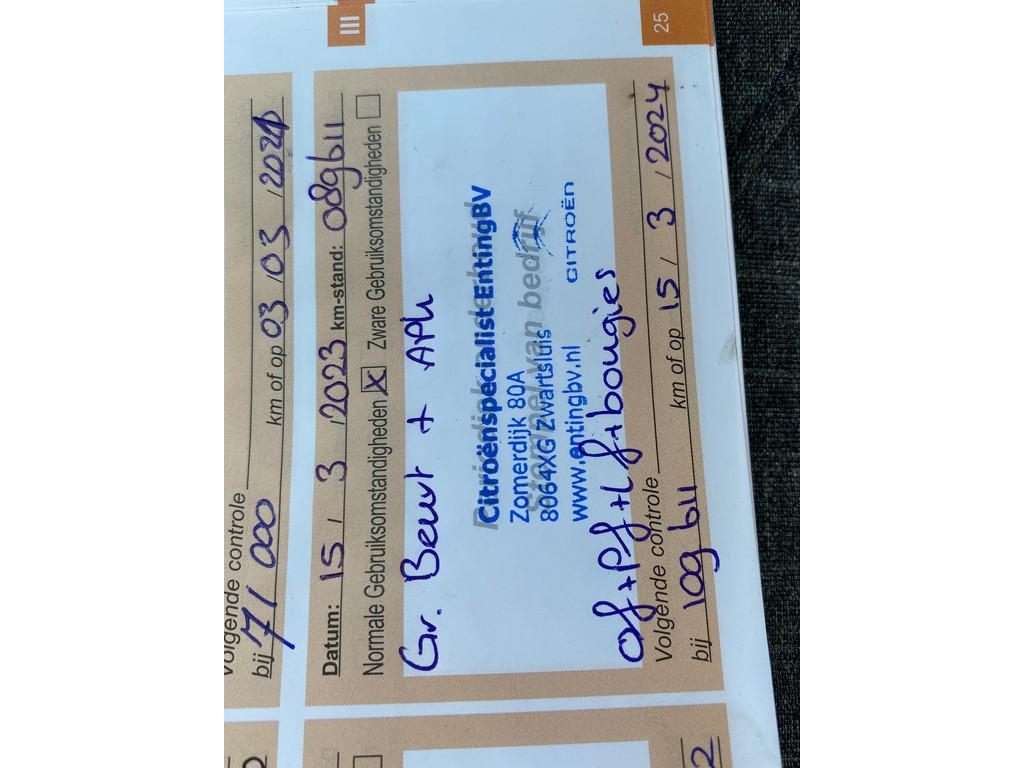 Volgende controle
bij 71 000 km of op 03 / 03 / 2024
III
Datum: 15 / 3 / 2023 km-stand: 089611
Normale Gebruiksomstandigheden X Zware Gebruiksomstandigheden
Gr. Beurt + APK
Periodiek onderhoud
Stempel van bedrijf
Citroënspecialist EntingBV
Zomerdijk 80A
8064XG Zwartsluis
www.entingbv.nl
CITROËN
of+pf+Lf+bougies
Volgende controle
bij 109 611 km of op 15 / 3 / 2024
25
2